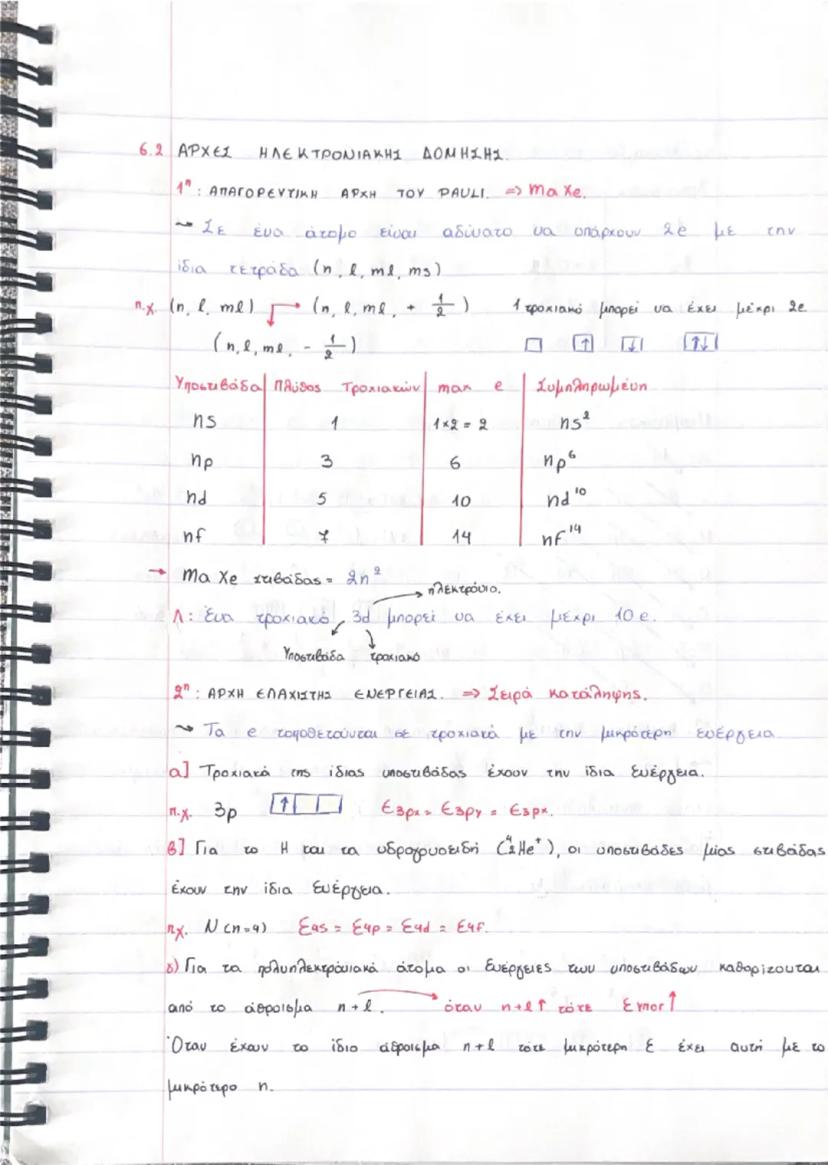 6.2 ΑΡΧΕΣ ΗΛΕΚΤΡΟΝΙΑΚΗΣ ΔΟΜΗΣΗΣ.
1η: ΑΠΑΓΟΡΕΥΤΙΚΗ ΑΡΧΗ ΤΟΥ PAULI. => max e.
~ Σε ένα άτομο είναι αδύνατο να υπάρχουν 2e με την
ίδια τετράδα (n, l, ml, ms)
π.χ. (n, l, ml) → (n, l, ml, + 1/2) 1 τροχιακό μπορεί να έχει μέχρι 2e
(n, l, ml, - 1/2) □ ↑ ↓ ↑↓
Υποστιβάδα Πλήθος Τροχιακών max e Συμπληρωμένη
ns 1 1×2 = 2 ns²
np 3 6 np⁶
nd 5 10 nd¹⁰
nf 7 14 nf¹⁴
→ max e στιβάδας = 2n²
→ ηλεκτρόνιο.
Λ: Ένα τροχιακό 3d μπορεί να έχει μέχρι 10e.
Υποστιβάδα τροχιακό
2η: ΑΡΧΗ ΕΛΑΧΙΣΤΗΣ ΕΝΕΡΓΕΙΑΣ. => Σειρά κατάληψης.
~ Τα e τοποθετούνται σε τροχιακά με την μικρότερη ενέργεια
α] Τροχιακά της ίδιας υποστιβάδας έχουν την ίδια ενέργεια.
π.χ. 3p ↑ Ε3px = Ε3py = Ε3px.
β] Για το Η και τα υδρογονοειδή (⁴₂He⁺), οι υποστιβάδες μίας στιβάδας
έχουν την ίδια ενέργεια.
πχ. N (n=4) Ε4s = Ε4p = Ε4d = Ε4f.
δ) Για τα πολυηλεκτρόνιακά άτομα οι ενέργειες των υποστιβάδων καθορίζονται
από το άθροισμα n+l. → όταν n+l↑ τότε Ευποσ↑
Όταν έχουν το ίδιο άθροισμα n+l τότε μικρότερη Ε έχει αυτή με το
μικρότερο n.